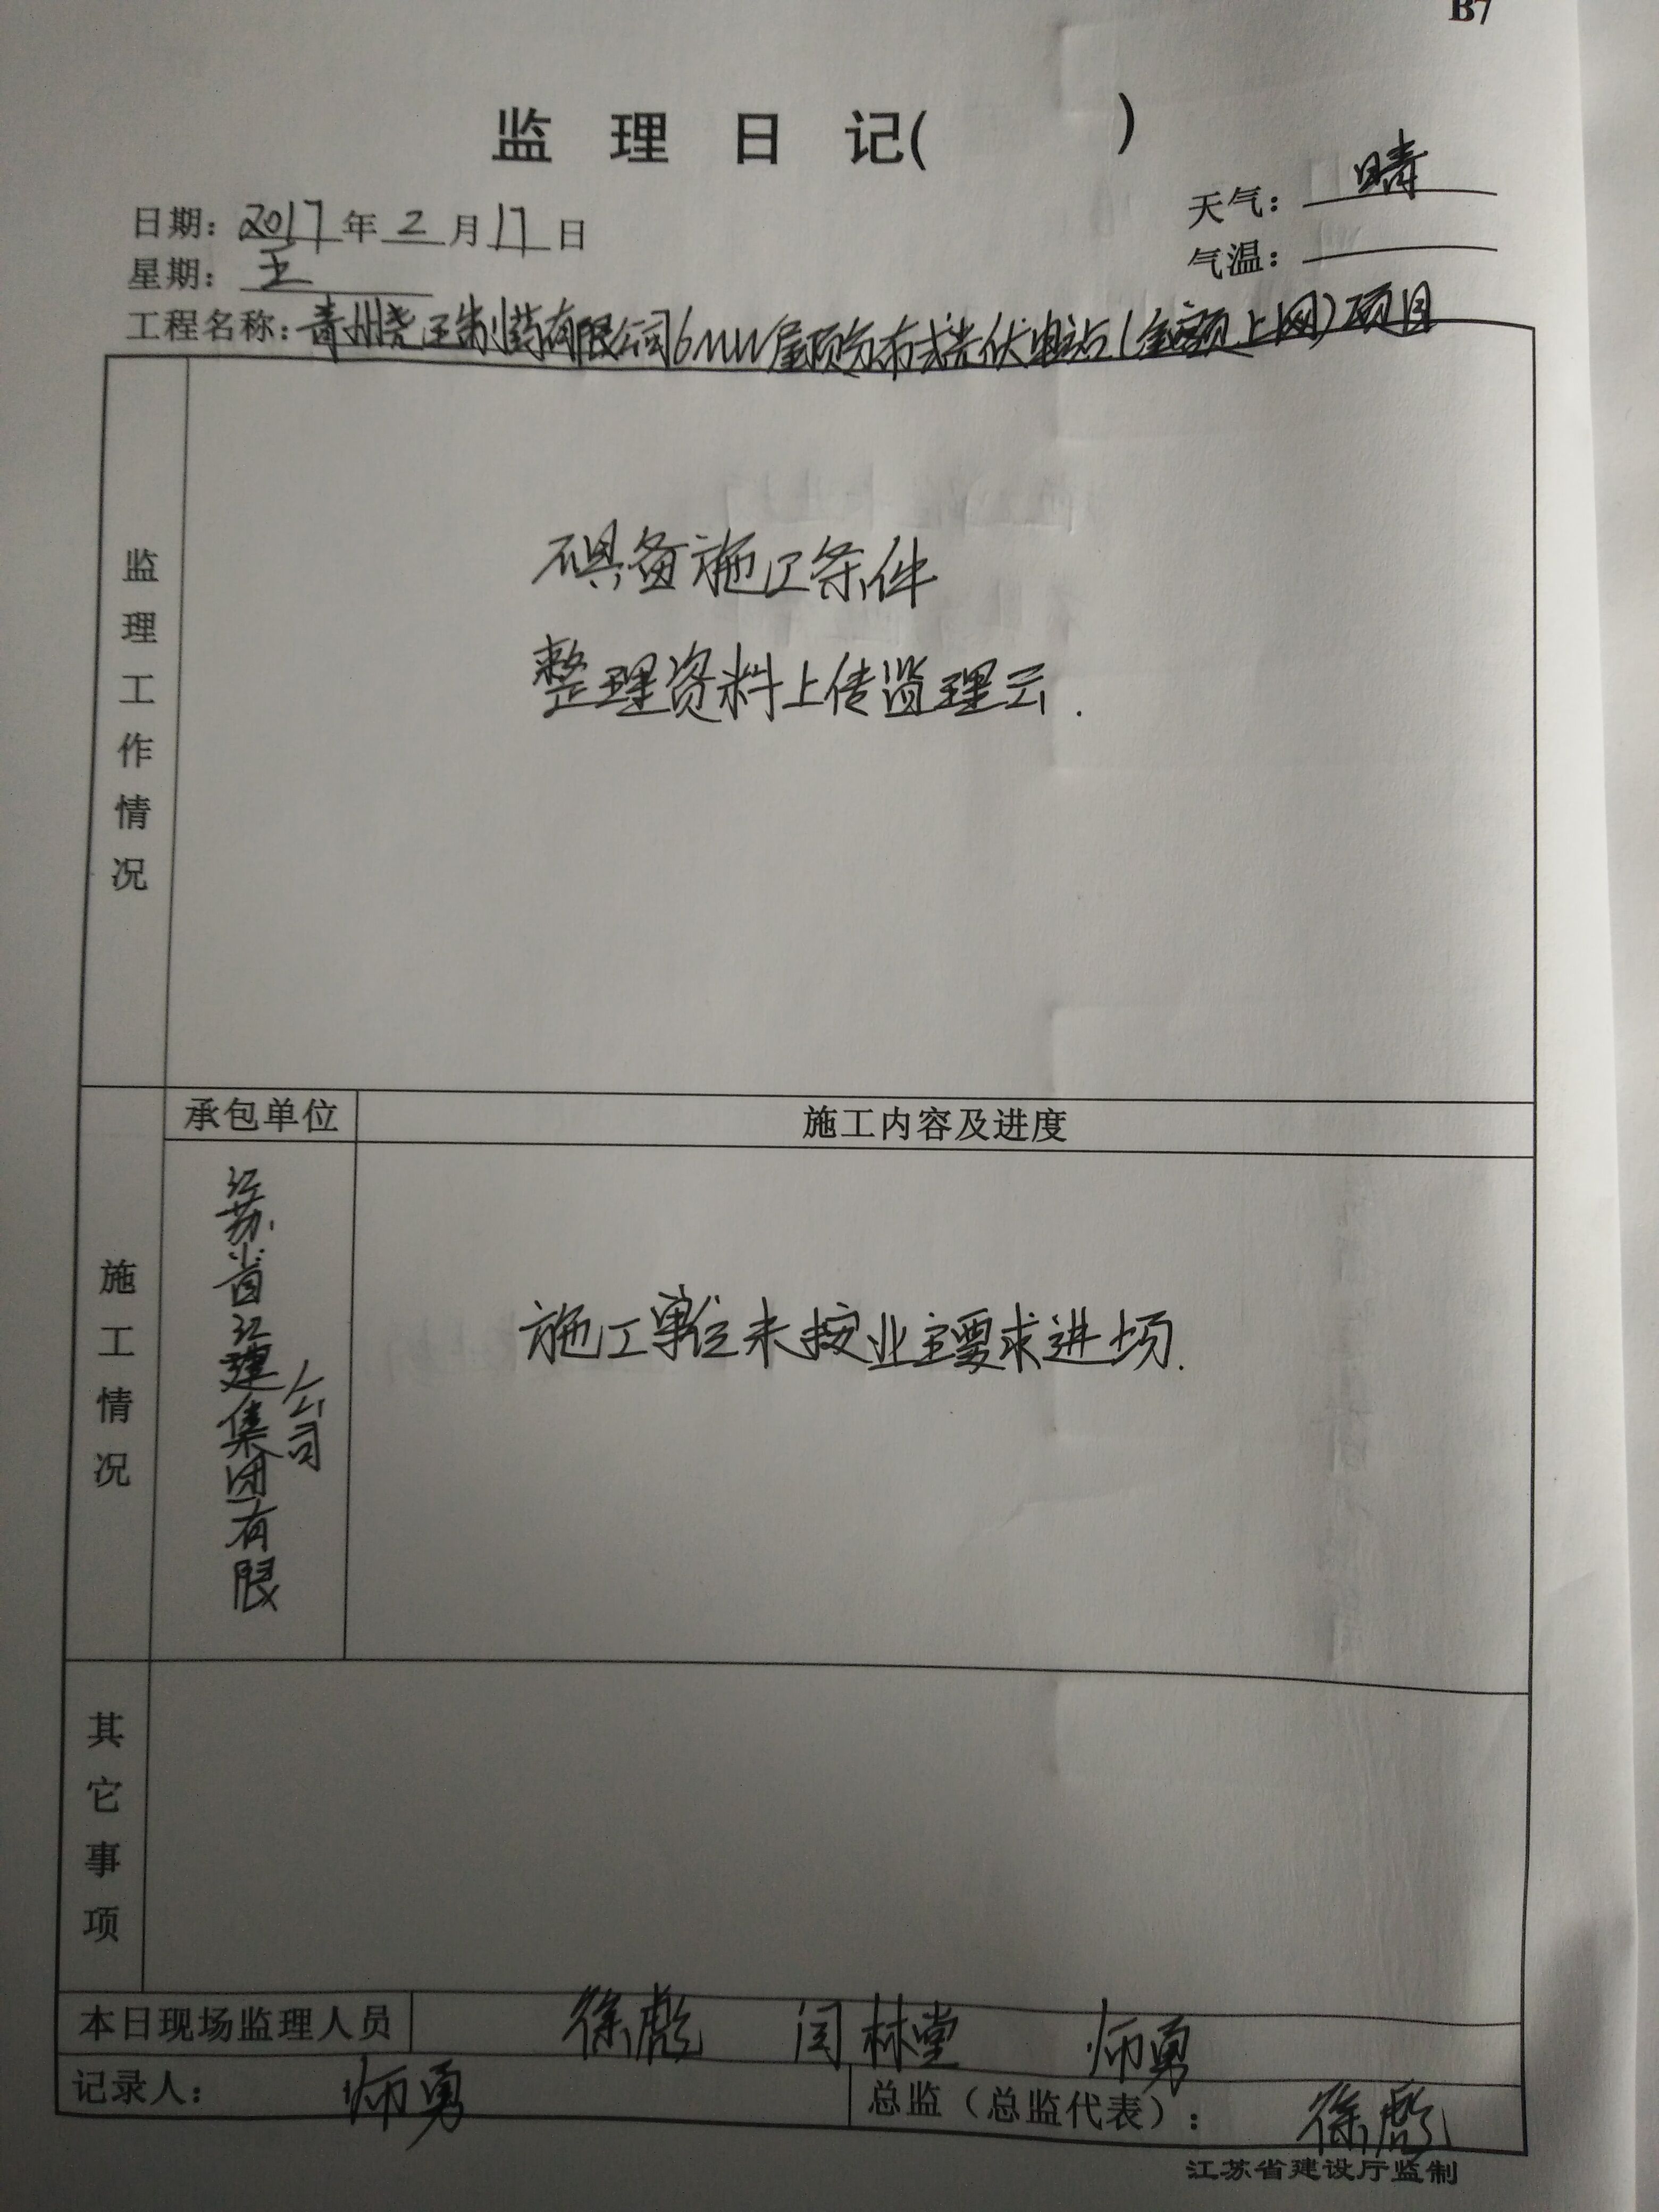 B7
监理日记( )
日期：2017年2月17日
天气：晴
星期：五
气温：
工程名称：青州尧王制药有限公司6MW屋顶分布式光伏电站(全额上网)项目
监理工作情况
不具备施工条件
整理资料上传监理云.
施工情况
承包单位
施工内容及进度
江苏省江建集团有限公司
施工单位未按业主要求进场.
其它事项
本日现场监理人员 徐彪 闫林堂 师勇
记录人：师勇
总监（总监代表）：徐彪
江苏省建设厅监制